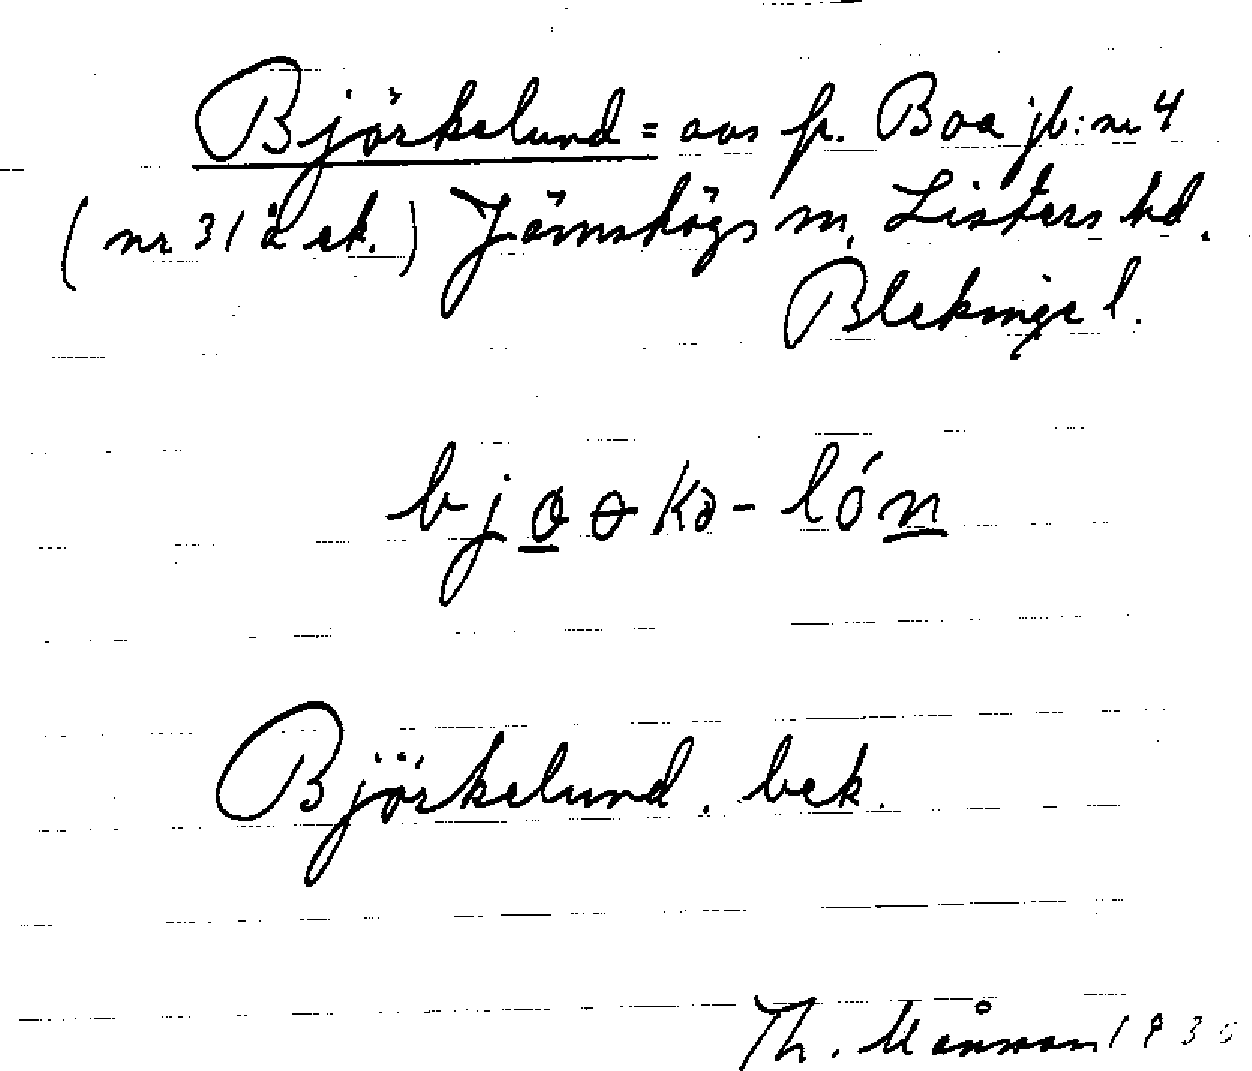 Björkelund = avs fr. Boa jb: nr 4
(nr 31 å ek.) Jämshögs sn, Listers hd.
Blekinge l.
bjo̲ɵkə-lón̲
Björkelund. bek.
Th. Månsson 1930